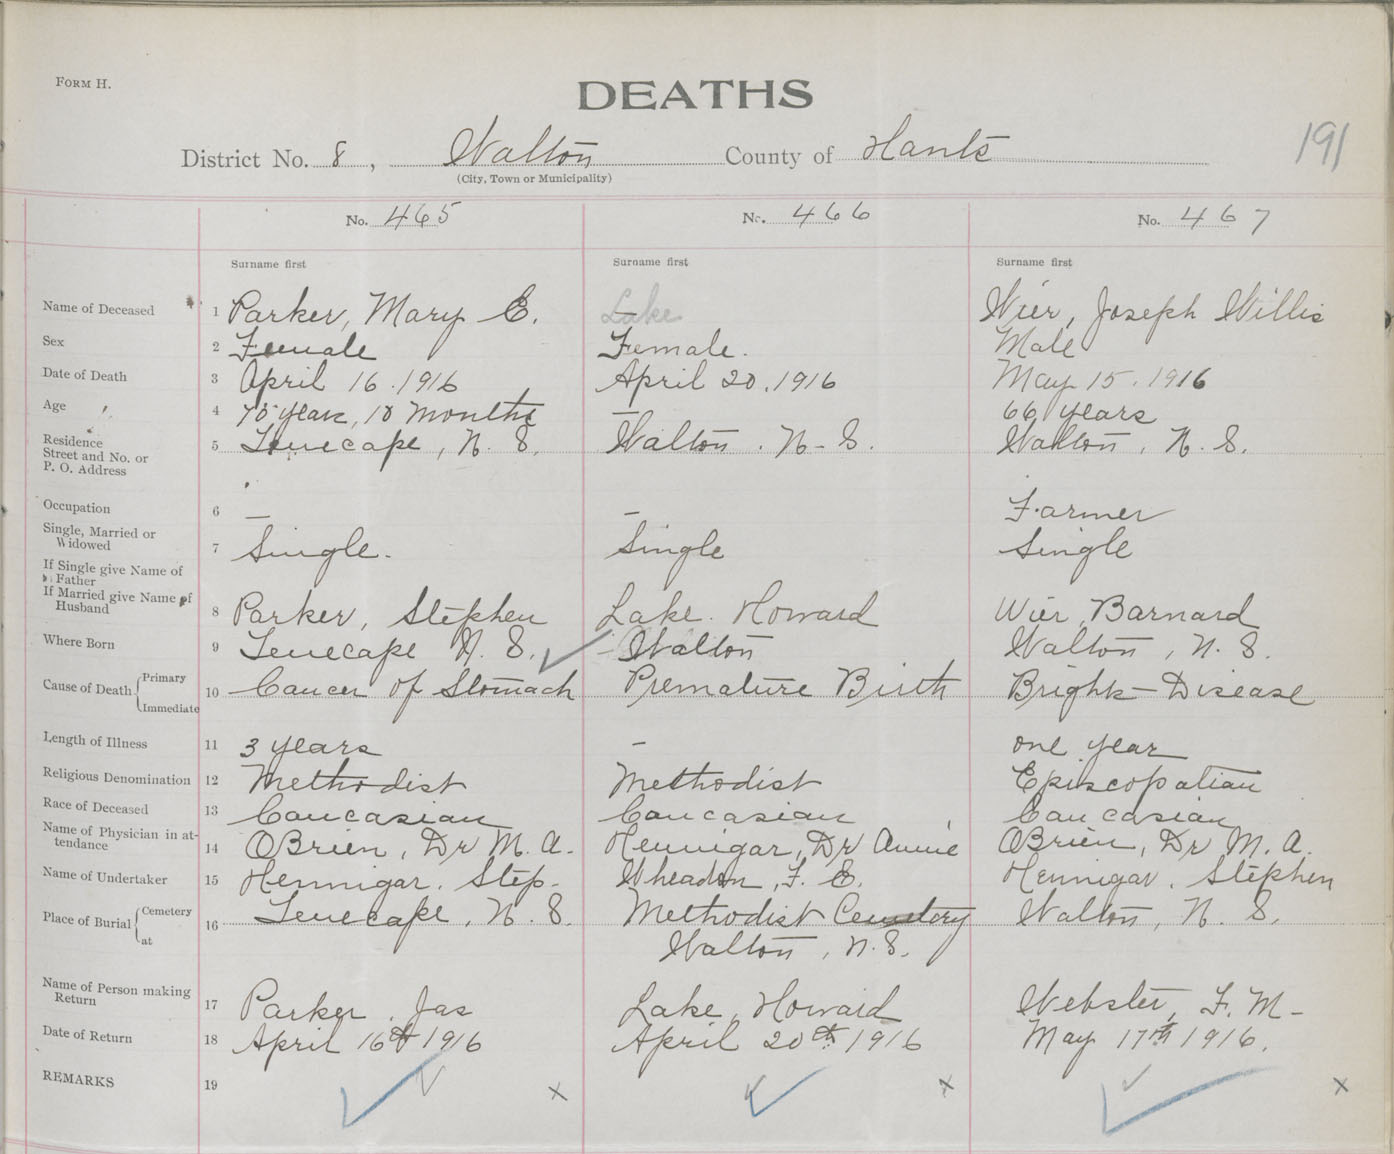 FORM H.
DEATHS
191
District No. 8, Walton County of Hants
(City, Town or Municipality)
No. 465 No. 466 No. 467
Surname first Surname first Surname first
Name of Deceased 1 Parker, Mary E. — Lake Wier, Joseph Willis
Sex 2 Female Female. Male
Date of Death 3 April 16. 1916 April 20, 1916 May 15. 1916
Age 4 years, 10 Months — 66 years
Residence
Street and No. or
P. O. Address
5 Tenecape, N. S. Walton. N-S. Walton, N. S.
Occupation 6 — — Farmer
Single, Married or
Widowed
7 Single. Single Single
If Single give Name of
Father
If Married give Name of
Husband
8 Parker, Stephen Lake. Howard Wier, Barnard
Where Born 9 Tenecape N. S. Walton Walton, N. S.
Cause of Death Primary
Immediate
10 Cancer of Stomach Premature Birth Brights-Disease
Length of Illness 11 3 years — one year
Religious Denomination 12 Methodist Methodist Episcopatian
Race of Deceased 13 Caucasian Caucasian Caucasian
Name of Physician in at-
tendance
14 OBrien, Dr M. A. Hennigar, Dr Annie OBrien, Dr M. A.
Name of Undertaker 15 Hennigar. Step. Wheadon, F. E. Hennigar. Stephen
Place of Burial Cemetery
at
16 Tenecape, N. S. Methodist Cemetery Walton, N. S.
Walton, N.S.
Name of Person making
Return
17 Parker. Jas Lake, Howard Webster, F. M-
Date of Return 18 April 16th 1916 April 20th 1916 May 17th 1916.
REMARKS 19 x x x